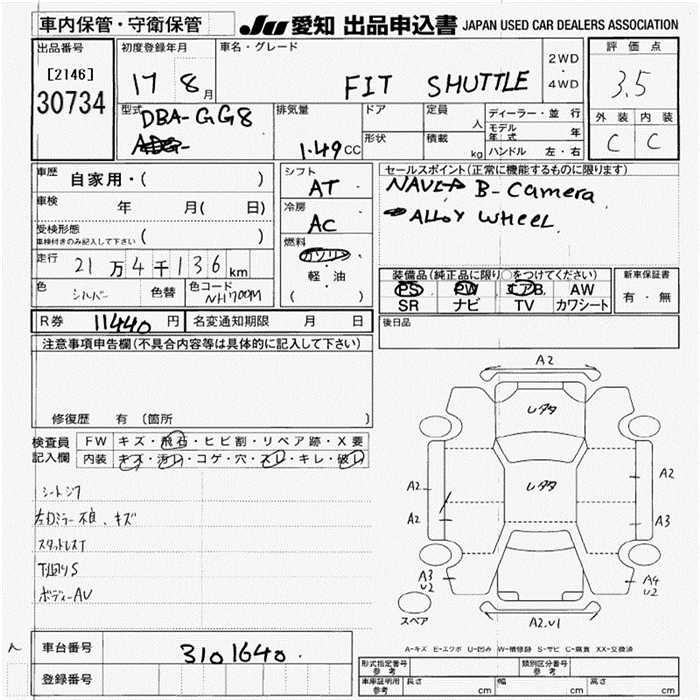 車内保管・守衛保管
JU 愛知 出品申込書 JAPAN USED CAR DEALERS ASSOCIATION
出品番号
[2146]
30734
初度登録年月
17 8月
車名・グレード
FIT SHUTTLE
2WD
・
4WD
評価点
3.5
外装 内装
C C
型式
DBA-GG8
排気量
1.49CC
ドア
形状
定員
人
積載
kg
ディーラー・並行
モデル年式 年
ハンドル 左・右
車歴
自家用・( )
車検
年 月( 日)
受検形態
車検付きのみ記入して下さい ( )
走行
21万4千136km
色 シルバー 色替 色コード NH700M
シフト
AT
冷房
AC
燃料
ガソリン
軽・油
( )
セールスポイント(正常に機能するものに限ります)
NAVI B-Camera
ALLOY WHEEL
装備品(純正品に限り○をつけてください)
PS PW エアB. AW
SR ナビ TV カワシート
新車保証書
有・無
後日品
R券 11440円 名変通知期限 月 日
注意事項申告欄(不具合内容等は具体的に記入して下さい)
修復歴 有 (箇所 )
検査員記入欄
FW キズ・飛石・ヒビ割・リペア跡・X要
内装 キズ・汚レ・コゲ・穴・スレ・キレ・破レ
シートシワ
左Dミラー不良、キズ
スタッドレスT
下廻りS
ボディーAU
A2
レタタ
レタタ
A2
A2
A2
A3
A3
U2
A4
U2
A2.U1
スペア
A-キズ E-エクボ U-凹み W-補修跡 S-サビ C-腐食 XX-交換済
車台番号
3101640
登録番号
形式指定番号
参考
類別区分番号
参考
車庫証明用
参考
長さ cm 幅 cm 高さ cm